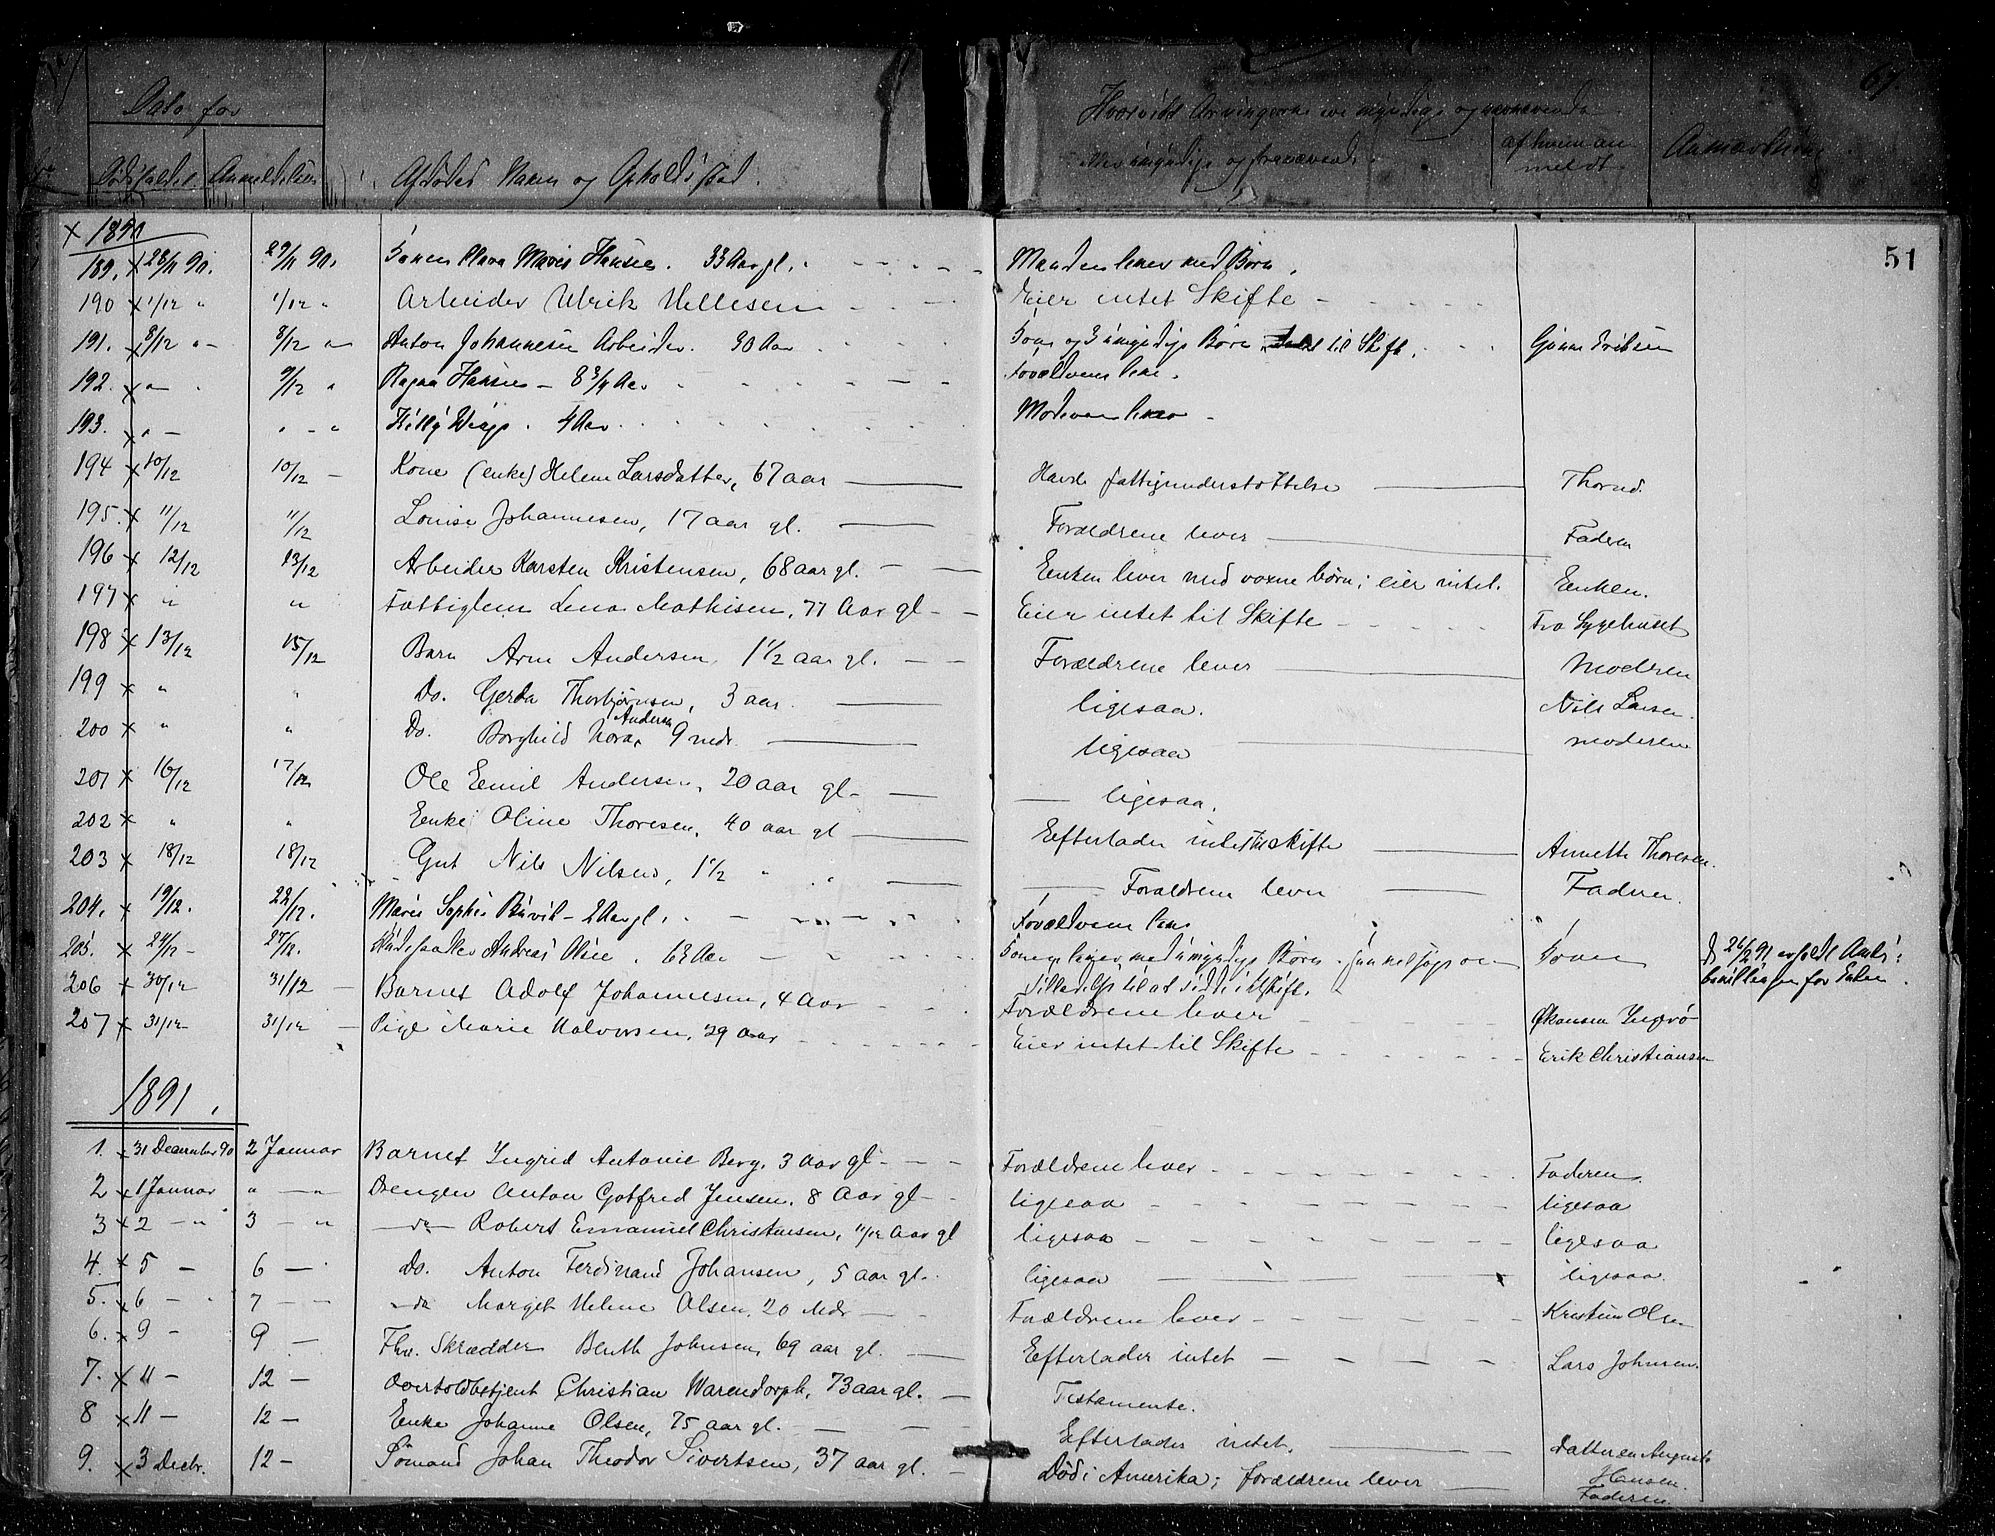 Dato for
Dødsfaldet Anmeldelsen Afdødes Navn og Opholdssted. Hvorvidt Arvingerne ere myndige og nærværende
eller umyndige og fraværende. af hvem anmeldt.
51
1890
189. 28/11 90. 29/11 90. Konen Maren Hansen. 33 Aar gl. Manden lever med Børn.
190 1/12 " 1/12 " Arbeider Ulrik Hellesen Eier intet Skifte
191. 8/12 " 8/12 " Anton Johannesen Arbeider. 30 Aar Kone og 3 umyndige Børn til Skifte.
192. " " 9/12 " Ragna Hansen - 8 3/4 Aar Forældrene leve.
193. " - " - " 4 Aar. Moderen lever
194 10/12 10/12 - Kone (enke) Helene Larsdatter, 67 aar Havde fattigunderstøttelse
195. 11/12 11/12 Louise Johannesen, 17 aar gl. Forældrene lever Faderen
196 12/12 13/12 Arbeider Karsten Kristensen, 68 aar gl. Enken lever med voxne børn; eier intet. Enken.
197 " " Fattiglem Lena Mathisen, 77 Aar gl Eier intet til Skifte Fra Sygehuset
198 13/12 15/12 Barn Arne Andersen, 1 1/2 aar gl. Forældrene lever Moderen
199 " " Do. Gerda Thorbjørnsen, 3 aar. ligesaa. Nils Larsen.
200 " " Do. Borghild Nora Andersen 9 mdr. ligesaa moderen
201 16/12 17/12 Ole Emil Andersen, 20 aar gl. ligesaa.
202 " " Enke Oline Thoresen, 40 aar gl Efterlader intet til skifte Annette Thoresen.
203 18/12 18/12 Gut Nils Nilsen, 1 1/2 " " Forældrene lever Faderen.
204. 19/12. 22/12. Marie Sophie - 2 Aar gl. Forældrene leve
205. 24/12 - 27/12. Andreas Olsen. 63 Aar Kone med umyndige Børn Konen
206 30/12 31/12 - Barnet Adolf Johannesen, 4 Aar Forældrene lever
207 31/12 31/12 - Pige Marie Halvorsen, 29 aar Eier intet til Skifte Erik Christiansen
1891.
1. 31 December 90 2 Januar Barnet Ingrid Antonie Berg. 3 Aar gl. Forældrene lever Faderen.
2 1 Januar " - " Drengen Anton Gotfred Jensen. 8 Aar gl. ligesaa ligesaa
3 2 - " 3 - " - do - Robert Emanuel Christensen, 11/12 Aar gl ligesaa ligesaa
4. 5 - 6 - Do. Anton Ferdinand Johansen, 5 aar gl. ligesaa ligesaa.
5. 6 - 7 - - do Marget Helene Olsen, 20 Mdr Forældrene lever Kristian Olsen
6. 9 - 9 - Fhv. Skrædder Benth Johnsen, 69 aar gl. Efterlader intet Lars Johnsen.
7. 11 - 12 - Overtoldbetjent Christian Warendorph, 73 aar gl. Testamente.
8 11 - 12 - Enke Johanne Olsen, 75 aar gl. Efterlader intet. Datteren Augusta Hansen.
9. 3 Decbr. 12 - Sømand Johan Theodor Sivertsen, 37 aar gl. Død i Amerika; forældrene lever Faderen